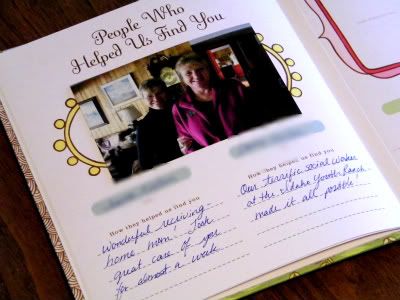 People Who
Helped Us Find You
How they helped us find you
Wonderful reciving
home mom! Took
great care of you
for almost a week
How they helped us find you
Our terrific social worker
at the Idaho Youth Ranch
made it all possible